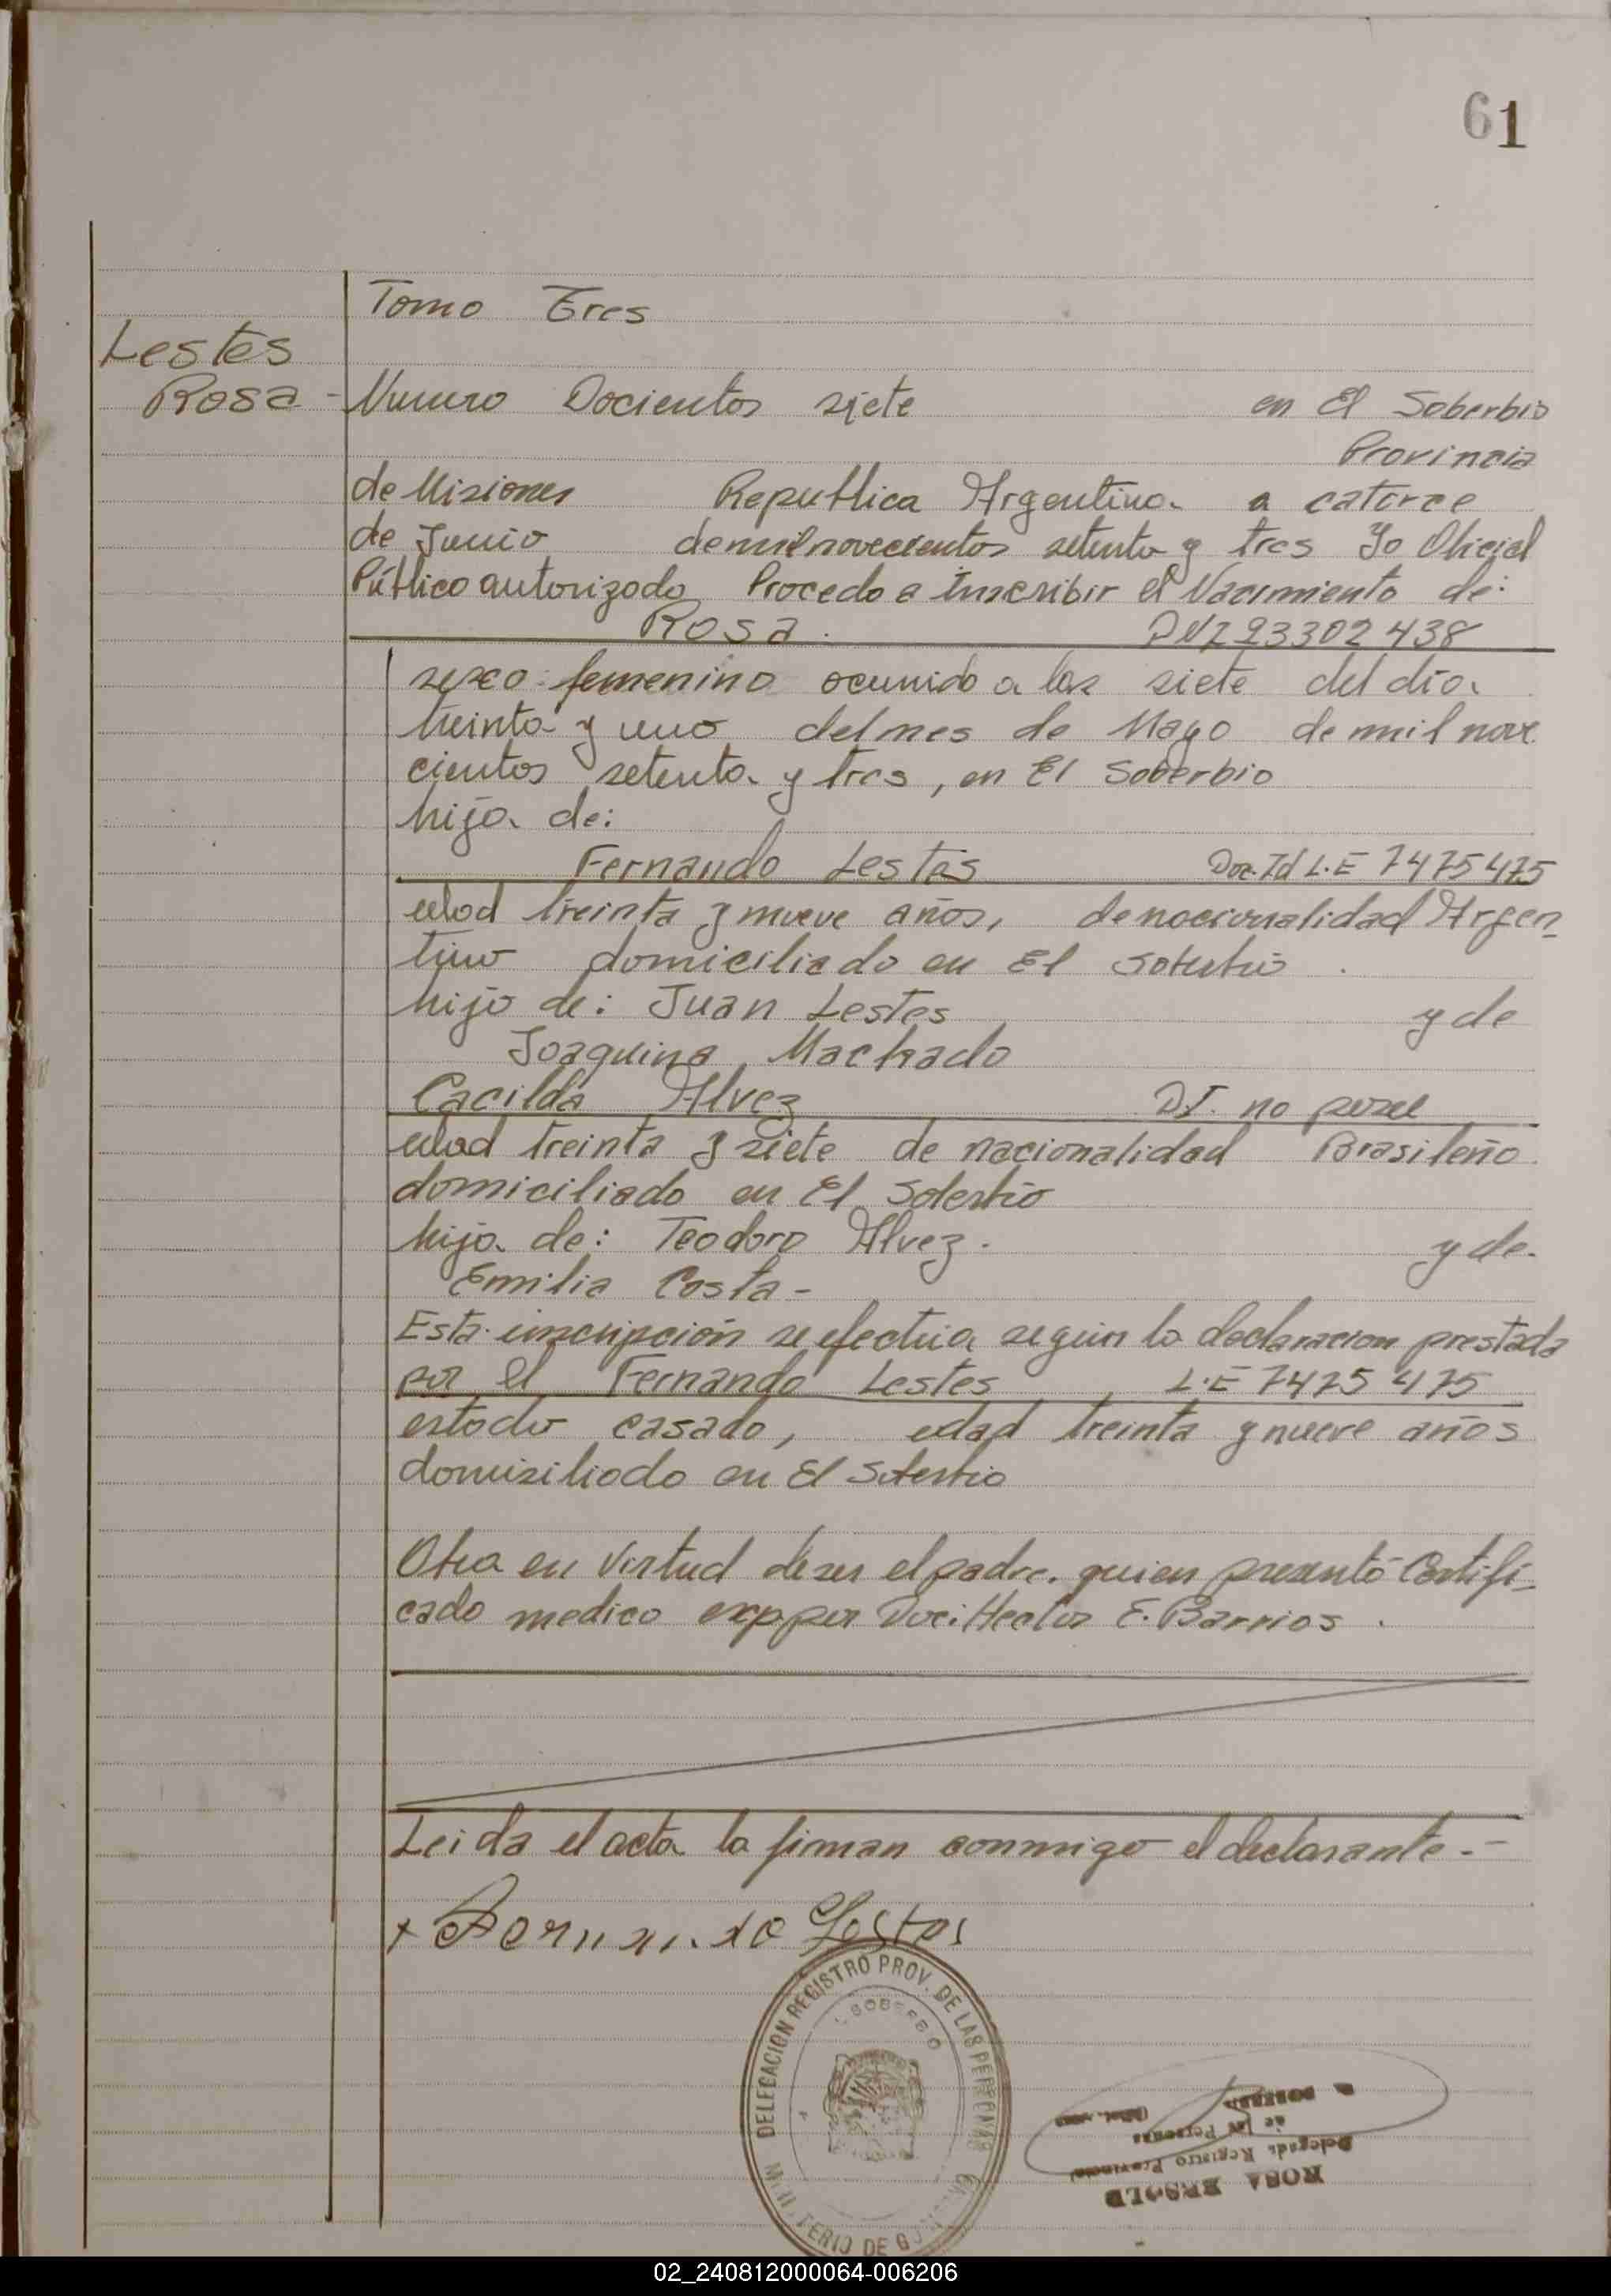 61
Tomo Tres
Lestes
Rosa - Numero Docientos siete en El Soberbio
Provincia
de Misiones Republica Argentina a catorce
de Junio de mil novecientos setenta y tres Yo Oficial
Público autorizado Procedo a Inscribir el Nacimiento de:
Rosa. DNI 23302438
sexo femenino ocurrido a las siete del día
treinta y uno del mes de Mayo de mil nove
cientos setenta y tres, en El Soberbio
hija de:
Fernando Lestes Doc. Id L.E 7475475
edad treinta y nueve años, de nacionalidad Argen-
tino domiciliado en El Soberbio.
hijo de: Juan Lestes y de
Joaquina Machado
Cacilda Alvez DI. no posee
edad treinta y siete de nacionalidad Brasileño
domiciliado en El Soberbio
hija de: Teodoro Alvez. y de.
Emilia Costa -
Esta inscripción se efectúa según la declaracion prestada
por el Fernando Lestes, L.E 7475475
estado casado, edad treinta y nueve años
domisiliado en El Soberbio
Obra en virtud de ser el padre. quien presentó Certifi-
cado medico exp por Doc. Hector E. Barrios.
Leida el acta la firman conmigo el declarante. -
x Fernando Lestes
DELEGACION REGISTRO PROV. DE LAS PERSONAS
EL SOBERBIO
MINISTERIO DE GOBIERNO
EL SOBERBIO
de las Personas
Delegada Registro Provincial
ROSA
02_240812000064-006206